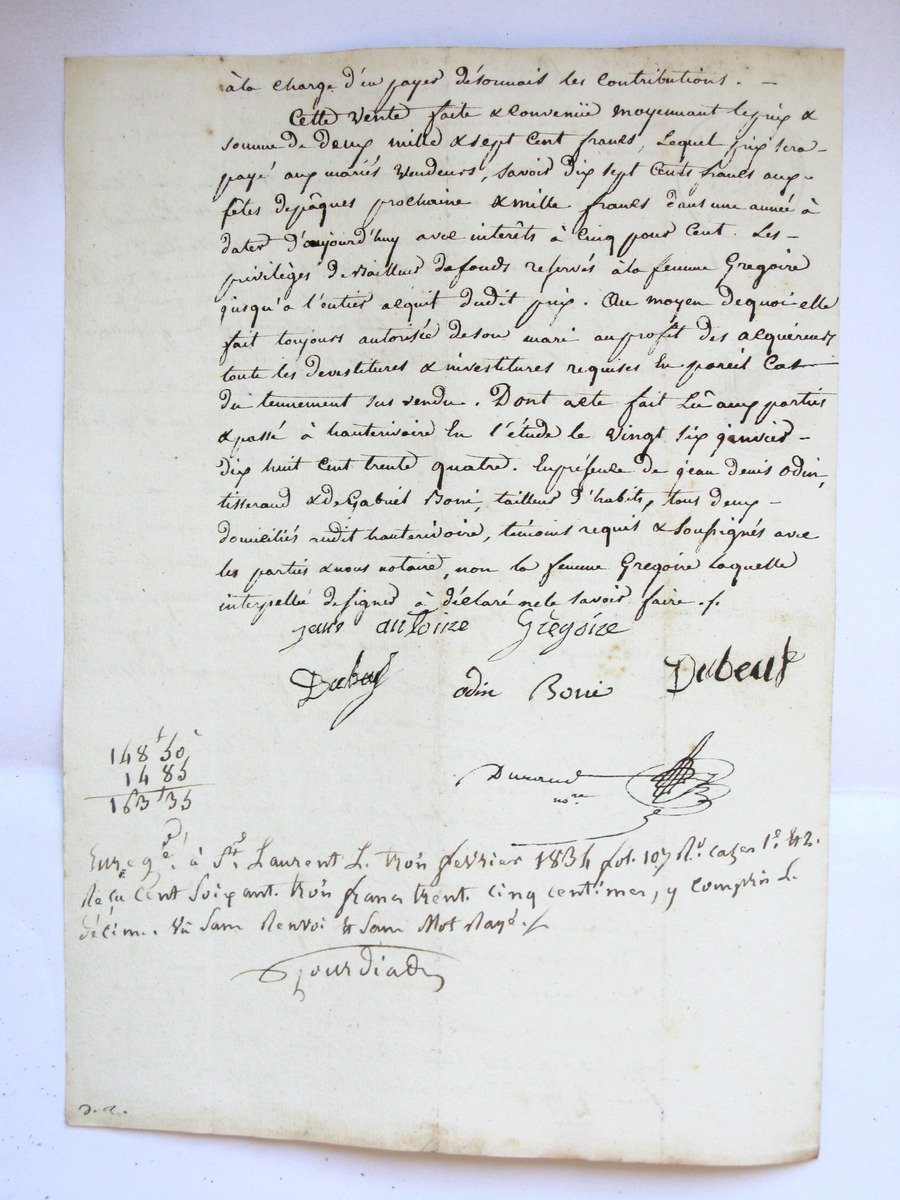 à la charge d'en payer désormais les contributions. –
Cette vente faite & convenüe moyennant le prix &
somme de deux mille & sept cent francs, Lequel prix sera –
payé aux mariés vendeurs, savoir dix sept cents francs aux –
fêtes de pâques prochaine & mille francs dans une année à
dater d'aujourd'huy avec interêts à cinq pour cent. Les –
privilèges de vailleur de fonds reservés à la femme Gregoire
jusqu'à l'entier acquit dudit prix. Au moyen de quoi elle
fait toujours autorisée de son mari au profit des acquéreurs
toute les devestitures & investitures requises En pareil Cas
du tennement sus vendu. Dont acte fait Lû aux parties
& passé à hauterivoire En l'étude le vingt six janvier –
dix huit cent trente quatre. En présence de jean denis odin,
tisserand & de Gabriel Boni, tailleur d'habits, tous deux –
domiciliés audit hauterivoire, témoins requis & soussignés avec
les parties & nous notaire, non la femme Gregoire laquelle
interpellée de signer à déclaré ne le savoir faire ./.
jean antoine Grégoire
Dubeuf odin Boni Dubeuf
148f 50c
14 85
163f 35
Durand
nore
Enregé. à St. Laurent L. trois fevrier 1834 fol. 107 Ro. cases 1e. & 2.
Reçu Cent Soixant. trois francs trent. cinq centimes, y compris L.
décim. Vû Sans Renvoi & Sans Mot Rayé ./
Jourdiad